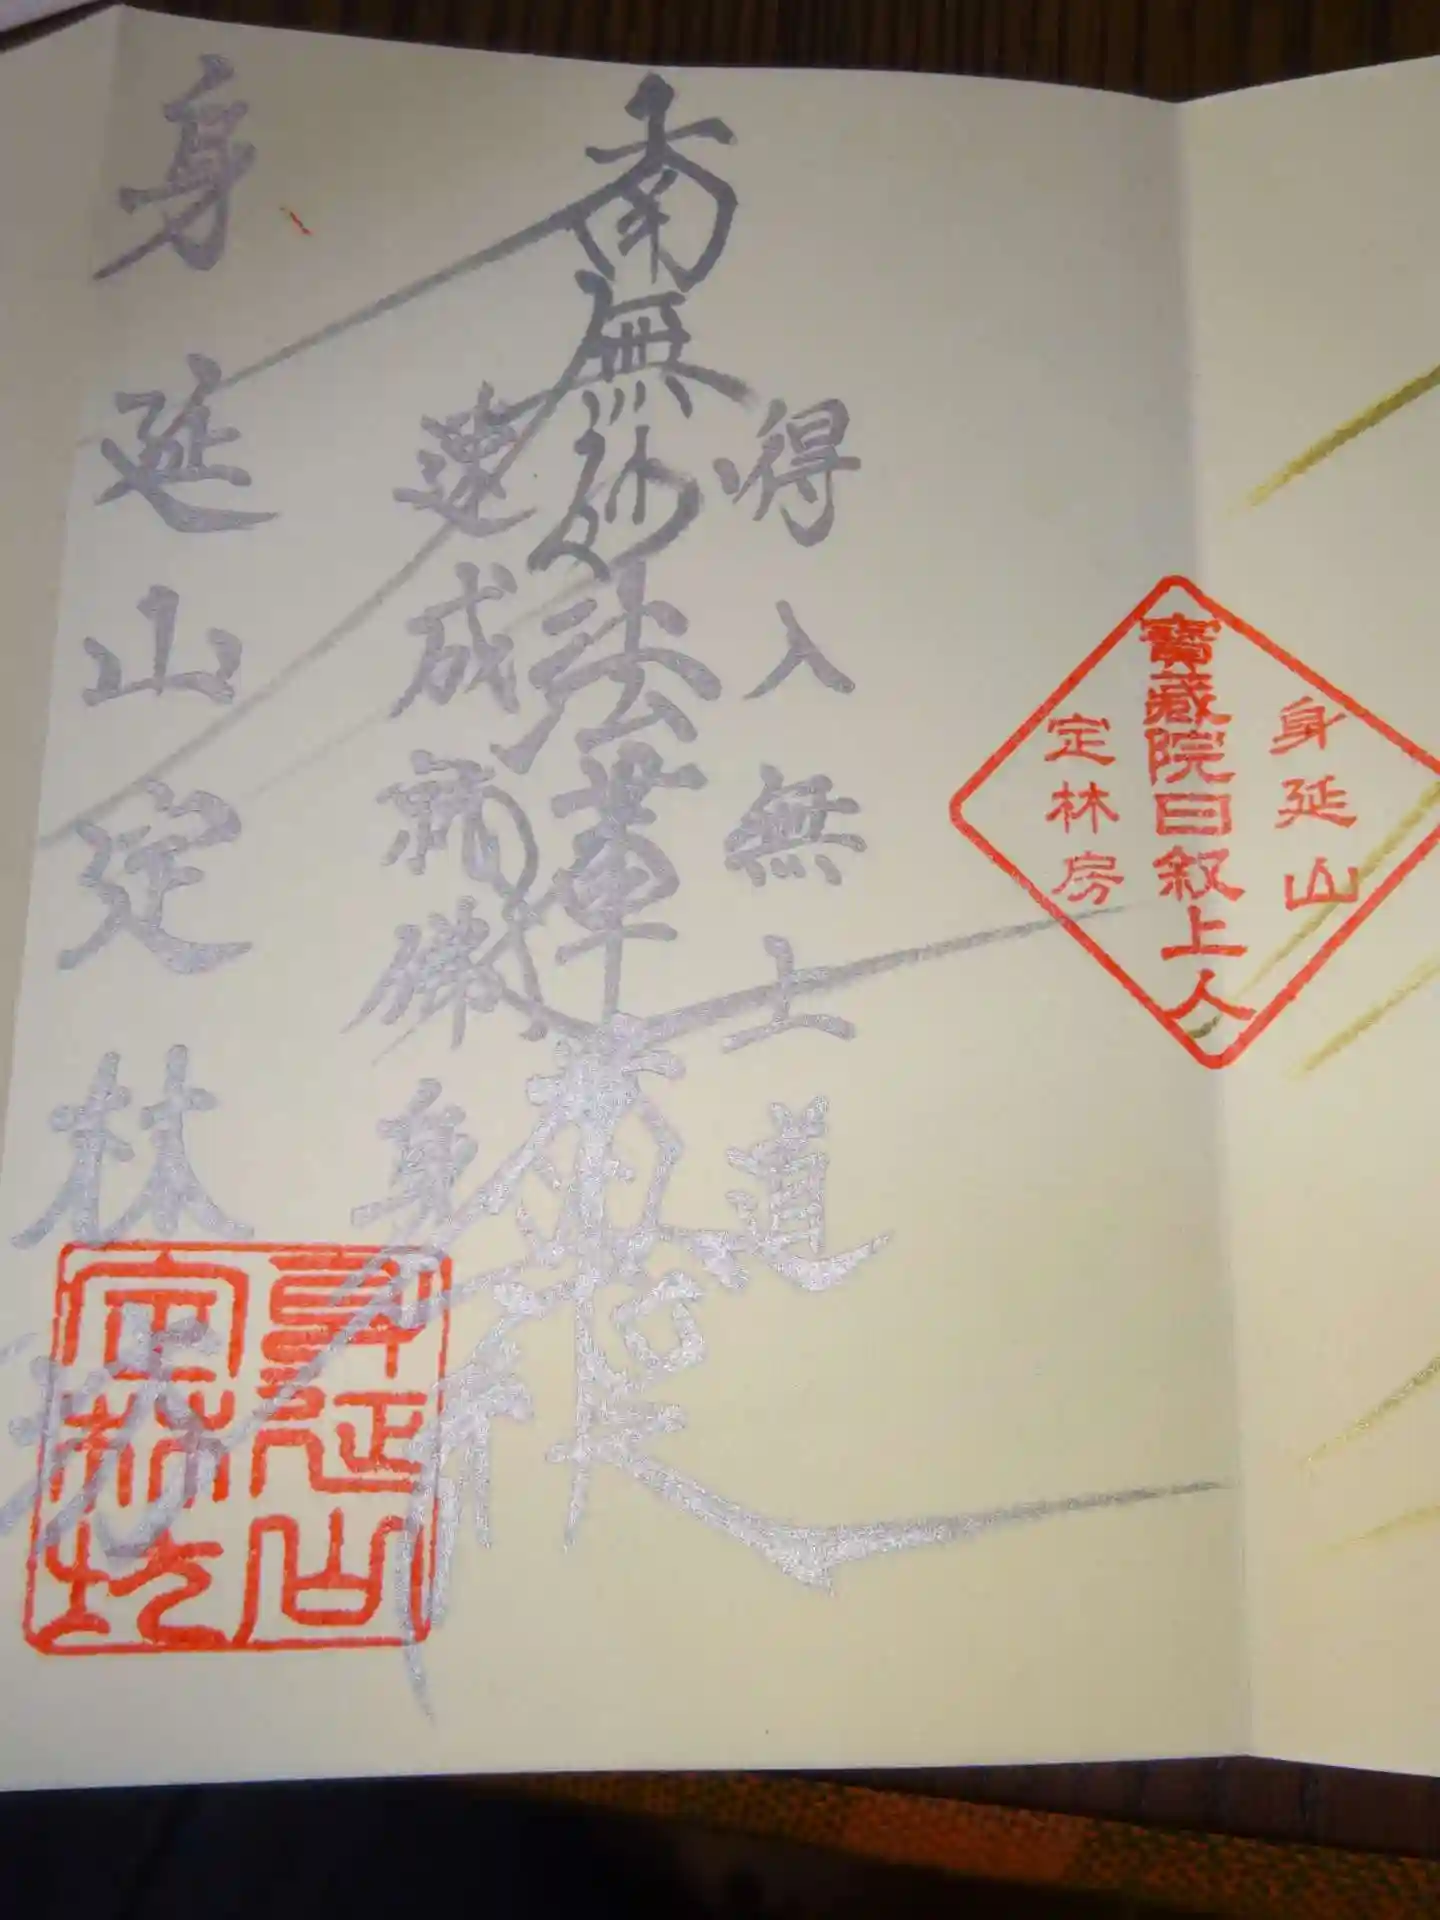 身延山
寶藏院日叙上人
定林房
得入無上道
南無妙法蓮華経
速成就佛身
身延山定林坊
身延山
定林坊